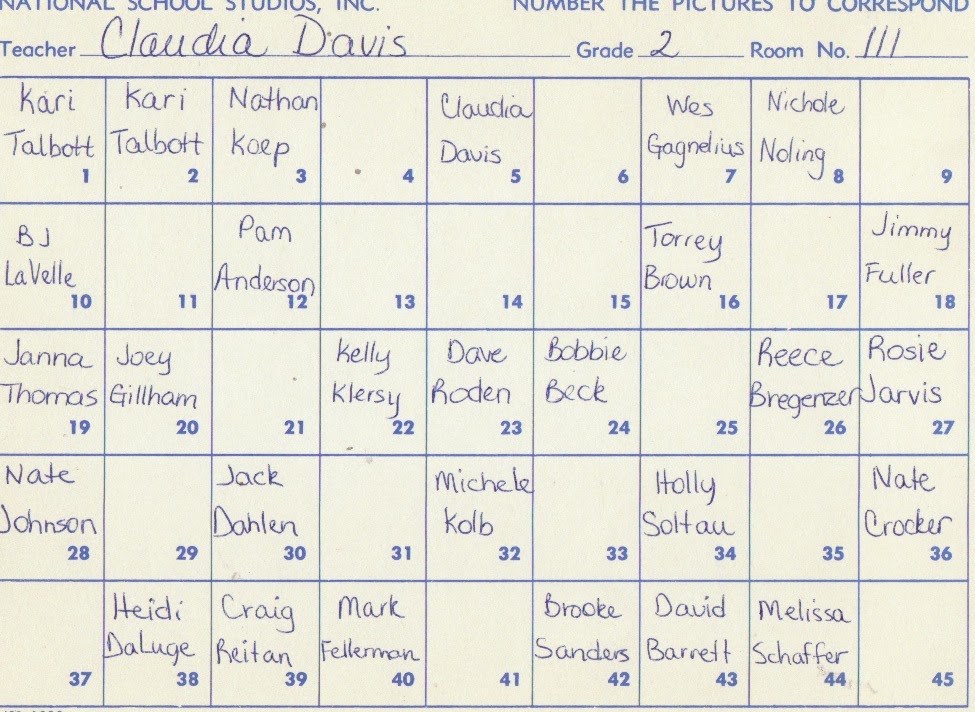 NATIONAL SCHOOL STUDIOS, INC. NUMBER THE PICTURES TO CORRESPOND
Teacher Claudia Davis Grade 2 Room No. 111
Kari Talbott 1
Kari Talbott 2
Nathan Koep 3
4
Claudia Davis 5
6
Wes Gagnelius 7
Nichole Noling 8
9
BJ LaVelle 10
11
Pam Anderson 12
13
14
15
Torrey Brown 16
17
Jimmy Fuller 18
Janna Thomas 19
Joey Gillham 20
21
Kelly Klersy 22
Dave Roden 23
Bobbie Beck 24
25
Reece Bregenzer 26
Rosie Jarvis 27
Nate Johnson 28
29
Jack Dahlen 30
31
Michele Kolb 32
33
Holly Soltau 34
35
Nate Crocker 36
37
Heidi DaLuge 38
Craig Reitan 39
Mark Fellerman 40
41
Brooke Sanders 42
David Barrett 43
Melissa Schaffer 44
45